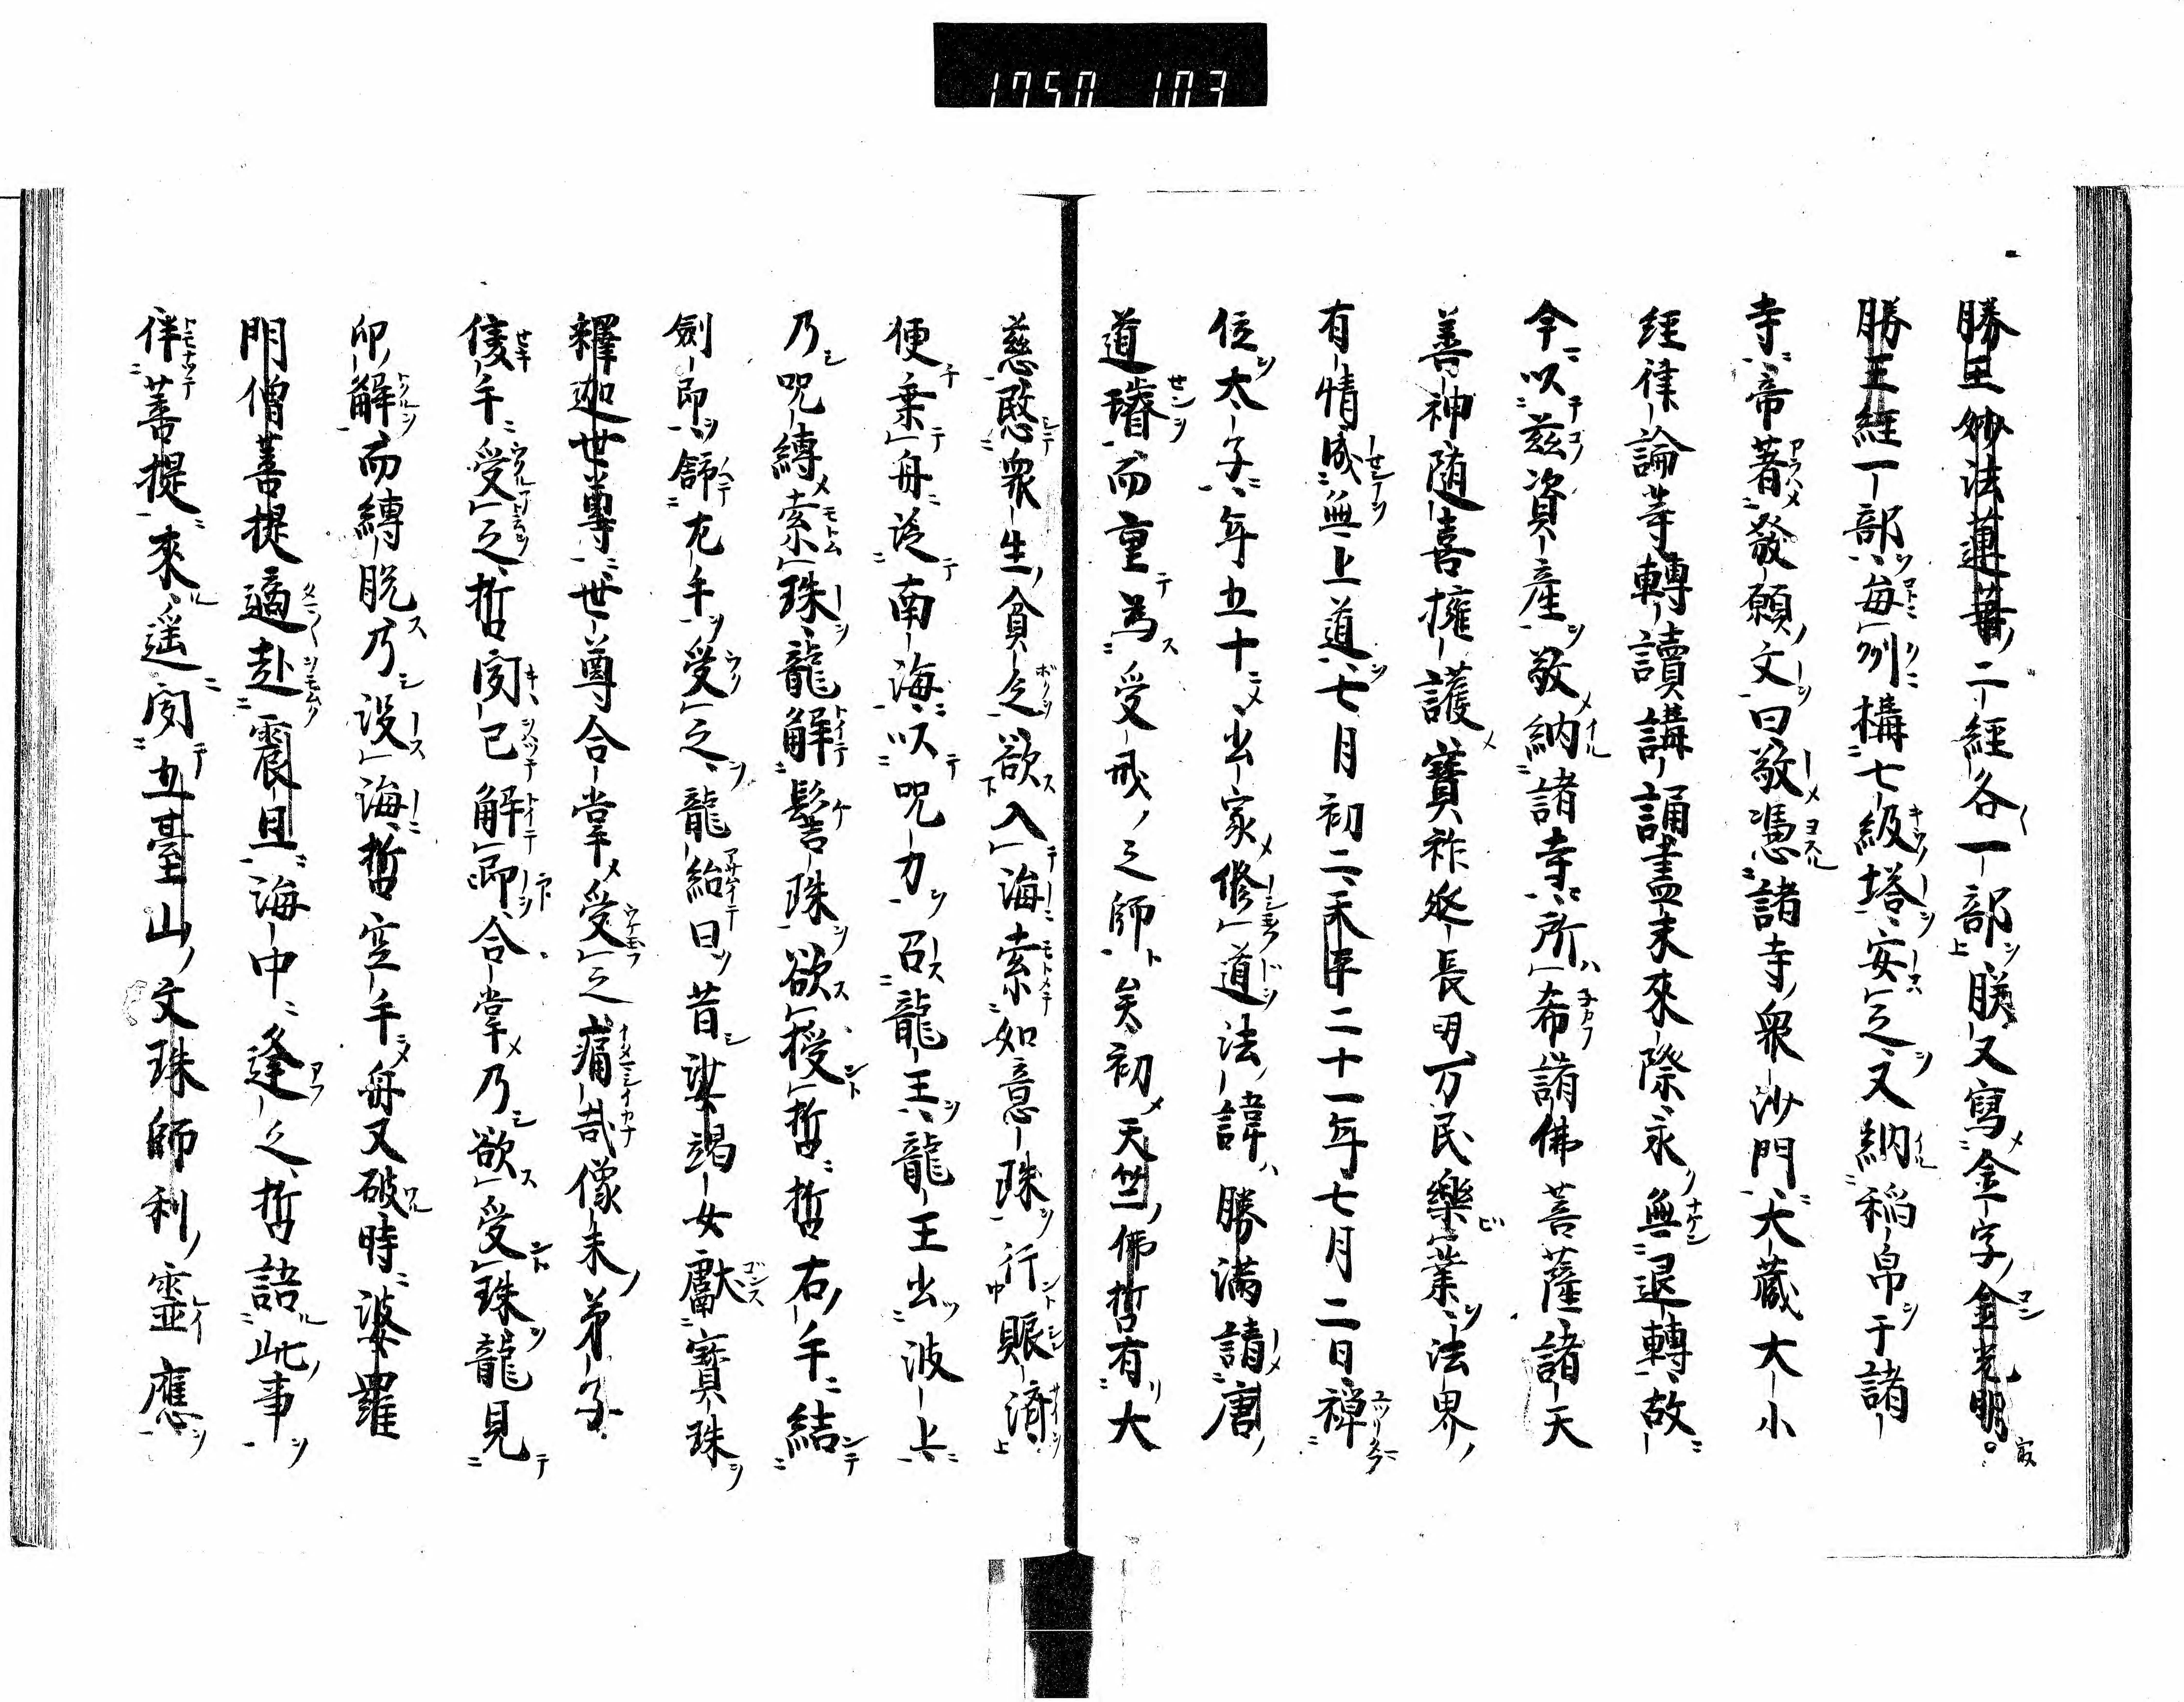 1750 103
勝王妙法蓮華二經各一部朕又寫金字金光明最
勝王經一部每刕構七級塔安之又納稲帛于諸
寺帝著發願文曰敬憑諸寺衆沙門大藏大小
經律論等轉讀講誦盡未來際永無退轉故
今以茲資産敬納諸寺所希諸佛菩薩諸天
善神随喜擁護寶祚延長明万民樂業法界
有情成無上道七月初二禾年二十一年七月二日禅
位太子年五十出家修道法諱勝滿請唐
道璿而重為受戒之師矣初天竺佛哲有大
慈愍衆生貪乏欲入海索如意珠行賑濟
便棄舟泛南海以呪力召龍王龍王出波上
乃呪縛索珠龍解髻珠欲授哲哲右手結
劍印舒左手受之龍紿曰昔娑竭女獻寶珠
釋迦世尊世尊合掌受之痛哉像末弟子
隻手受之哲閔已解印合掌乃欲受珠龍見
印解而縛脱乃没海哲空手舟又破時婆羅
門僧菩提適赴震旦海中逢之哲語此事
伴菩提來遥閔五臺山文珠師利靈應